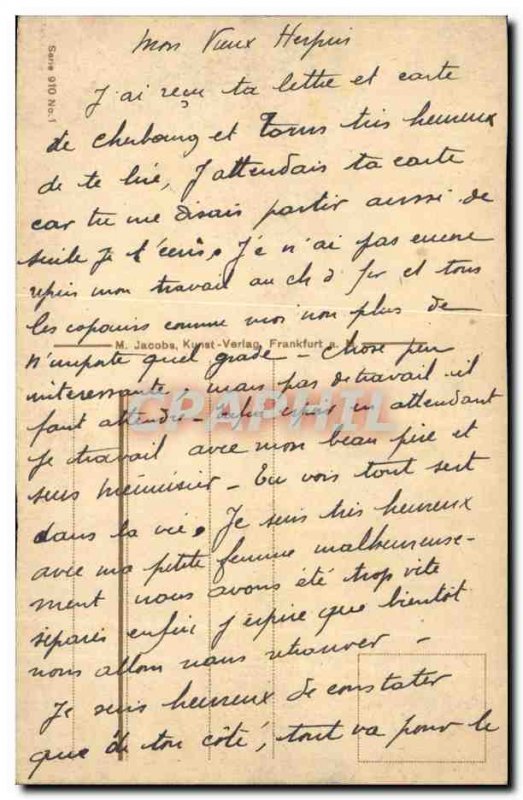 Mon Vieux Herpin
J'ai reçu ta lettre et carte
de cherbourg et très heureux
de te lire, J'attendais ta carte
car tu me disais partir aussi de
suite je t'écris. Je n'ai pas encore
repris mon travail au ch d fer et tous
les copains comme moi non plus de
n'importe quel grade - chose peu
interessante, mais pas de travail il
faut attendre - en attendant
Je travail avec mon beau père et
suis menuisier - Tu vois tout sert
dans la vie. Je suis très heureux
avec ma petite femme malheureuse-
ment nous avons été trop vite
séparés enfin j'espire que bientôt
nous allons nous retrouver -
Je suis heureux de constater
que de ton côté, tout va pour le
Serie 910 No. 1
M. Jacobs, Kunst-Verlag, Frankfurt a. M.
CARAPHIL